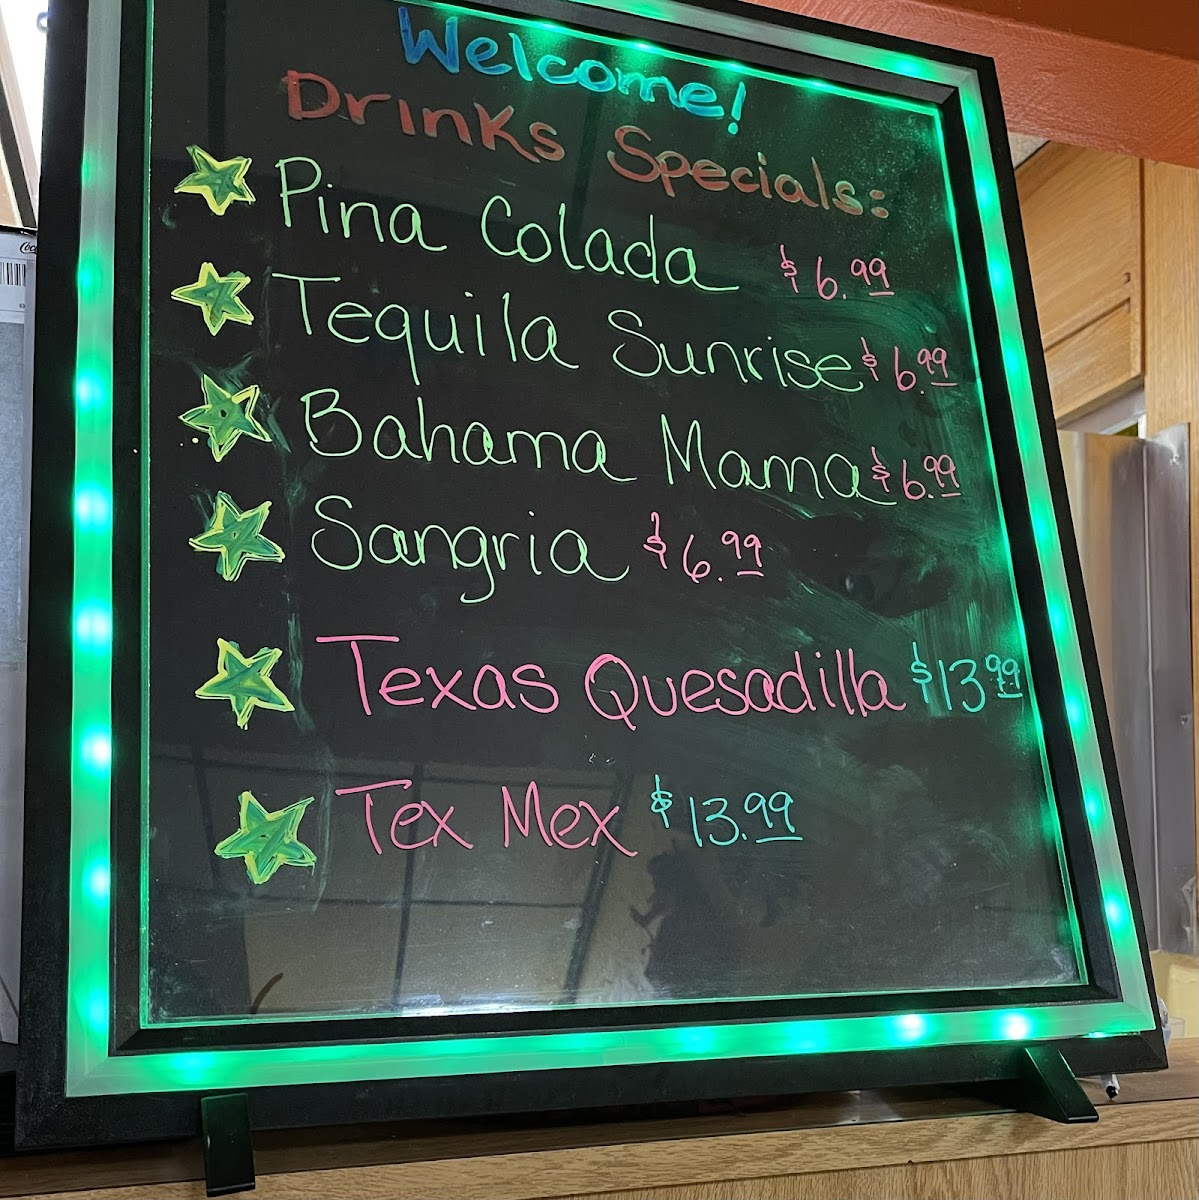 Welcome!
Drinks Specials:
Pina Colada $6.99
Tequila Sunrise $6.99
Bahama Mama $6.99
Sangria $6.99
Texas Quesadilla $13.99
Tex Mex $13.99